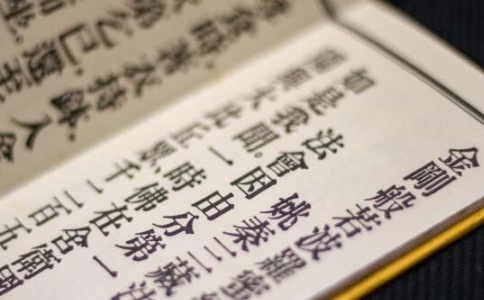 金剛般若波羅蜜
姚秦三藏法
法會因由分第一
如是我聞。一時佛在舍衛國
園與大比丘眾，千二百五
食時著衣持鉢，入舍
次第乞已，還至